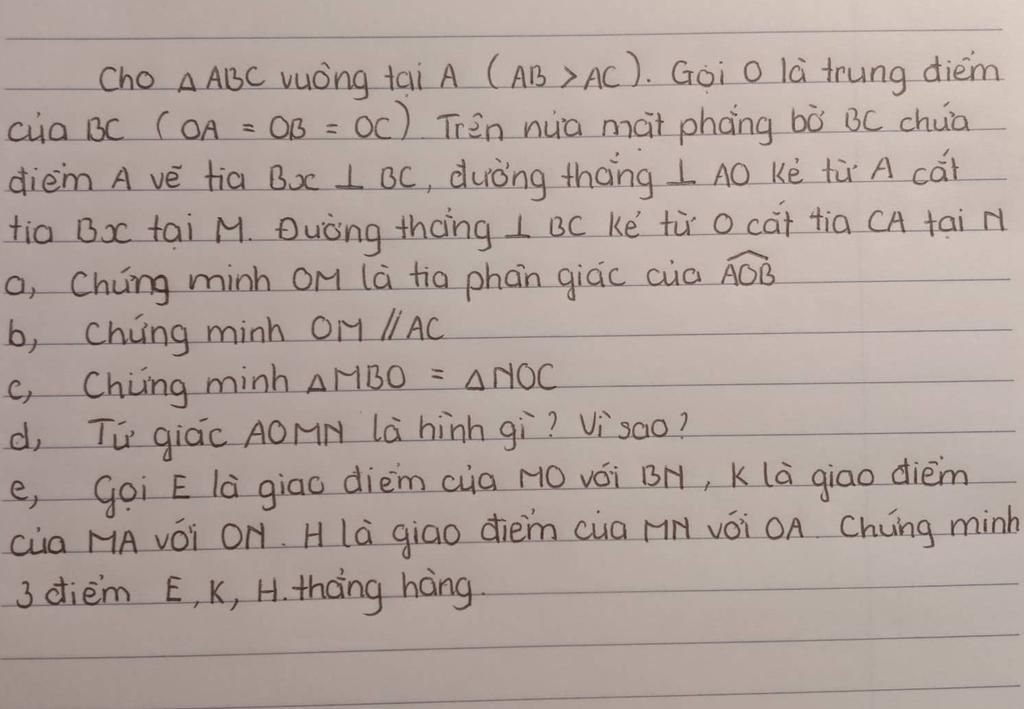 Cho △ABC vuông tại A (AB > AC). Gọi O là trung điểm
của BC (OA = OB = OC) Trên nửa mặt phẳng bờ BC chứa
điểm A vẽ tia Bx ⊥ BC, đường thẳng ⊥ AO kẻ từ A cắt
tia Bx tại M. Đường thẳng ⊥ BC kẻ từ O cắt tia CA tại N
a, Chứng minh OM là tia phân giác của \widehat{AOB}
b, Chứng minh OM // AC
c, Chứng minh △MBO = △NOC
d, Tứ giác AOMN là hình gì? Vì sao?
e, Gọi E là giao điểm của MO với BN, K là giao điểm
của MA với ON. H là giao điểm của MN với OA. Chứng minh
3 điểm E, K, H. thẳng hàng.